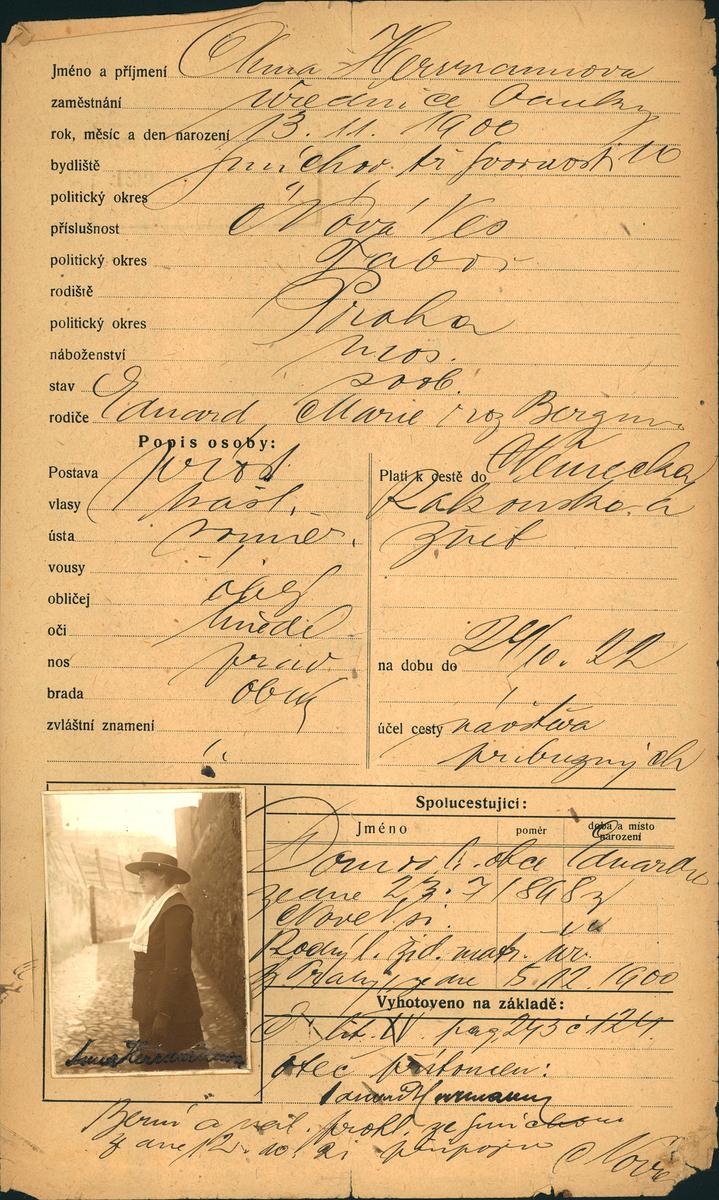 Jméno a příjmení Anna Herrmannova
zaměstnání úřednice banky
rok, měsíc a den narození 13. 11. 1900
bydliště Smíchov tř Svornosti 10
politický okres "
příslušnost Nová Ves
politický okres Tabor
rodiště Praha
politický okres
náboženství mos.
stav svob.
rodiče Eduard Marie roz
Popis osoby:
Postava prost
vlasy kašt.
ústa souměr.
vousy
obličej obl
oči hnědé
nos prav
brada obl
zvláštní znamení
Platí k cestě do Německa
Rakouska a
zpět
na dobu do 24/10. 22
účel cesty návštěva
příbuzných
Spolucestující:
Jméno poměr doba a místo narození
Domov. l. obce Eduarda
ze dne 2/3. 1898 z
Nové Vsi
Rodný l. žid. matr. úř.
v Praze ze dne 5. 12. 1900
Vyhotoveno na základě:
lit. IV. pag 243 č 124.
otec přítomen:
Eduard Herrmann
Anna Herrmannova
Berní a prohl. ze Smíchova
z dne 12. připojen